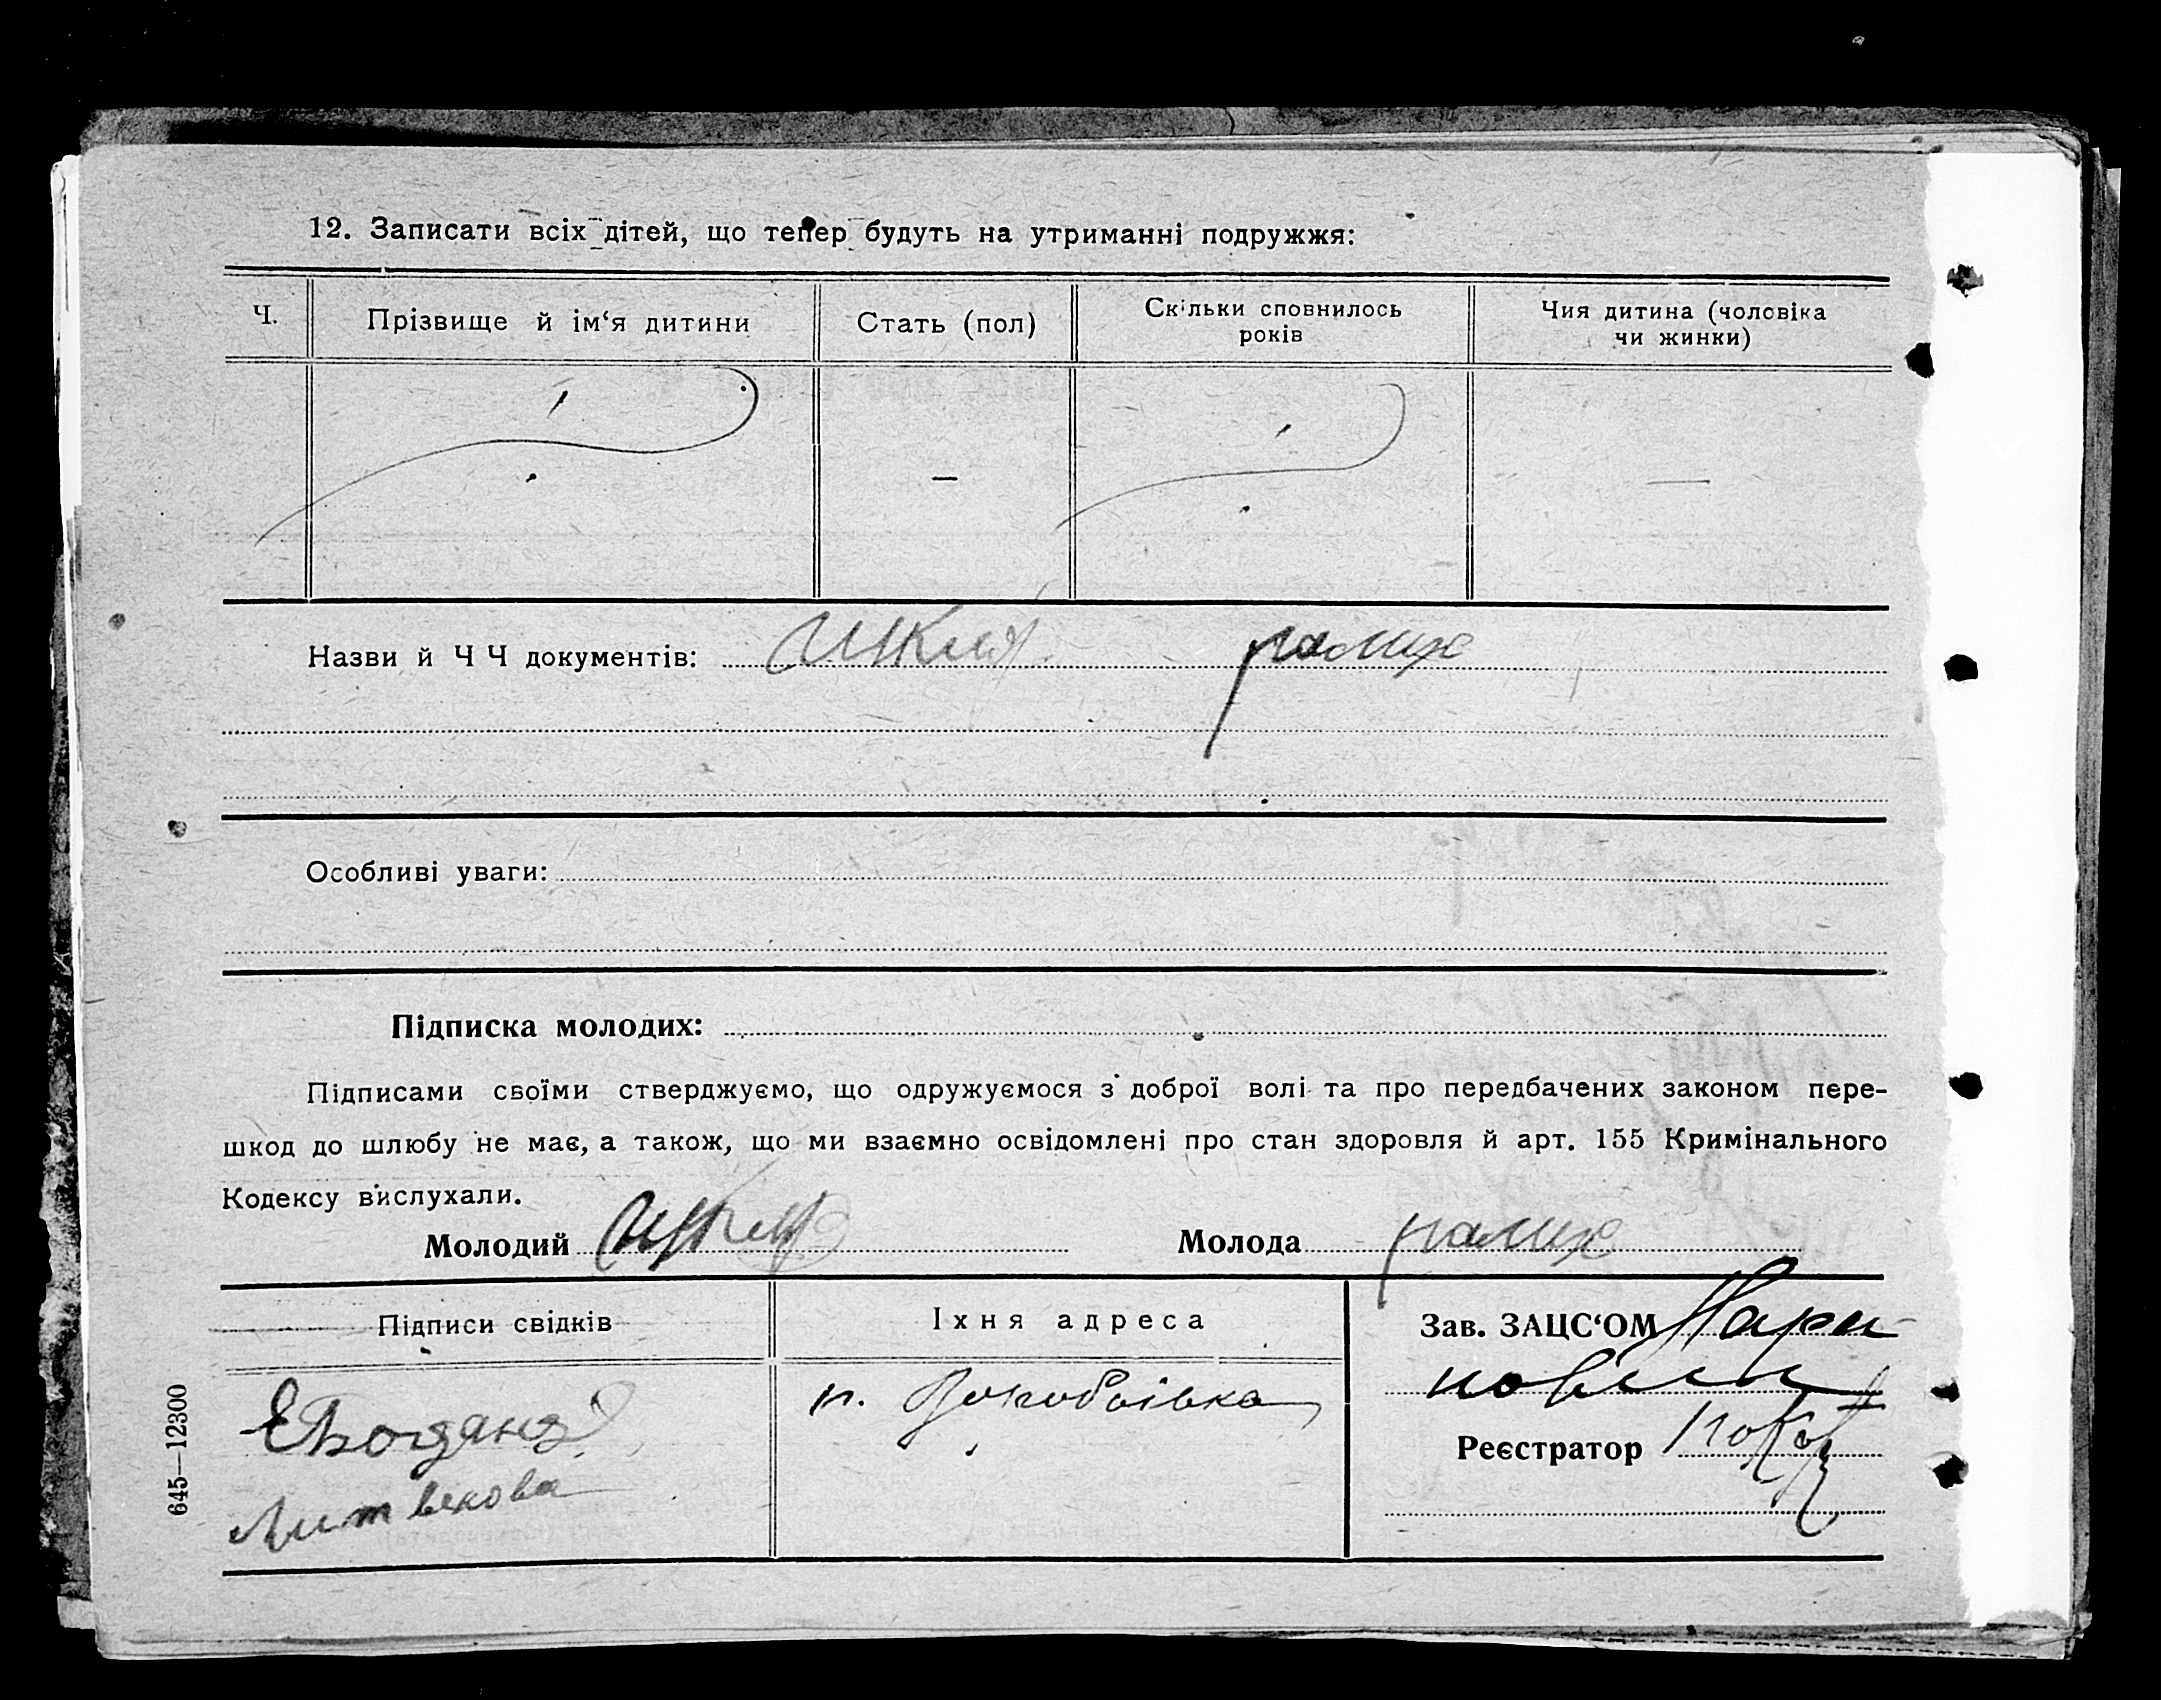 12. Записати всіх дітей, що тепер будуть на утриманні подружжя:
Ч.
Прізвище й ім‘я дитини
Стать (пол)
Скільки сповнилось
років
Чия дитина (чоловіка
чи жинки)
—
—
Назви й Ч Ч документів:
Особливі уваги:
Підписка молодих:
Підписами своїми стверджуємо, що одружуємося з доброї волі та про передбачених законом пере-
шкод до шлюбу не має, а також, що ми взаємно освідомлені про стан здоровля й арт. 155 Кримінального
Кодексу вислухали.
Молодий
Молода
Підписи свідків
Іхня адреса
Зав. ЗАЦС‘ОМ
Реєстратор
645—12300